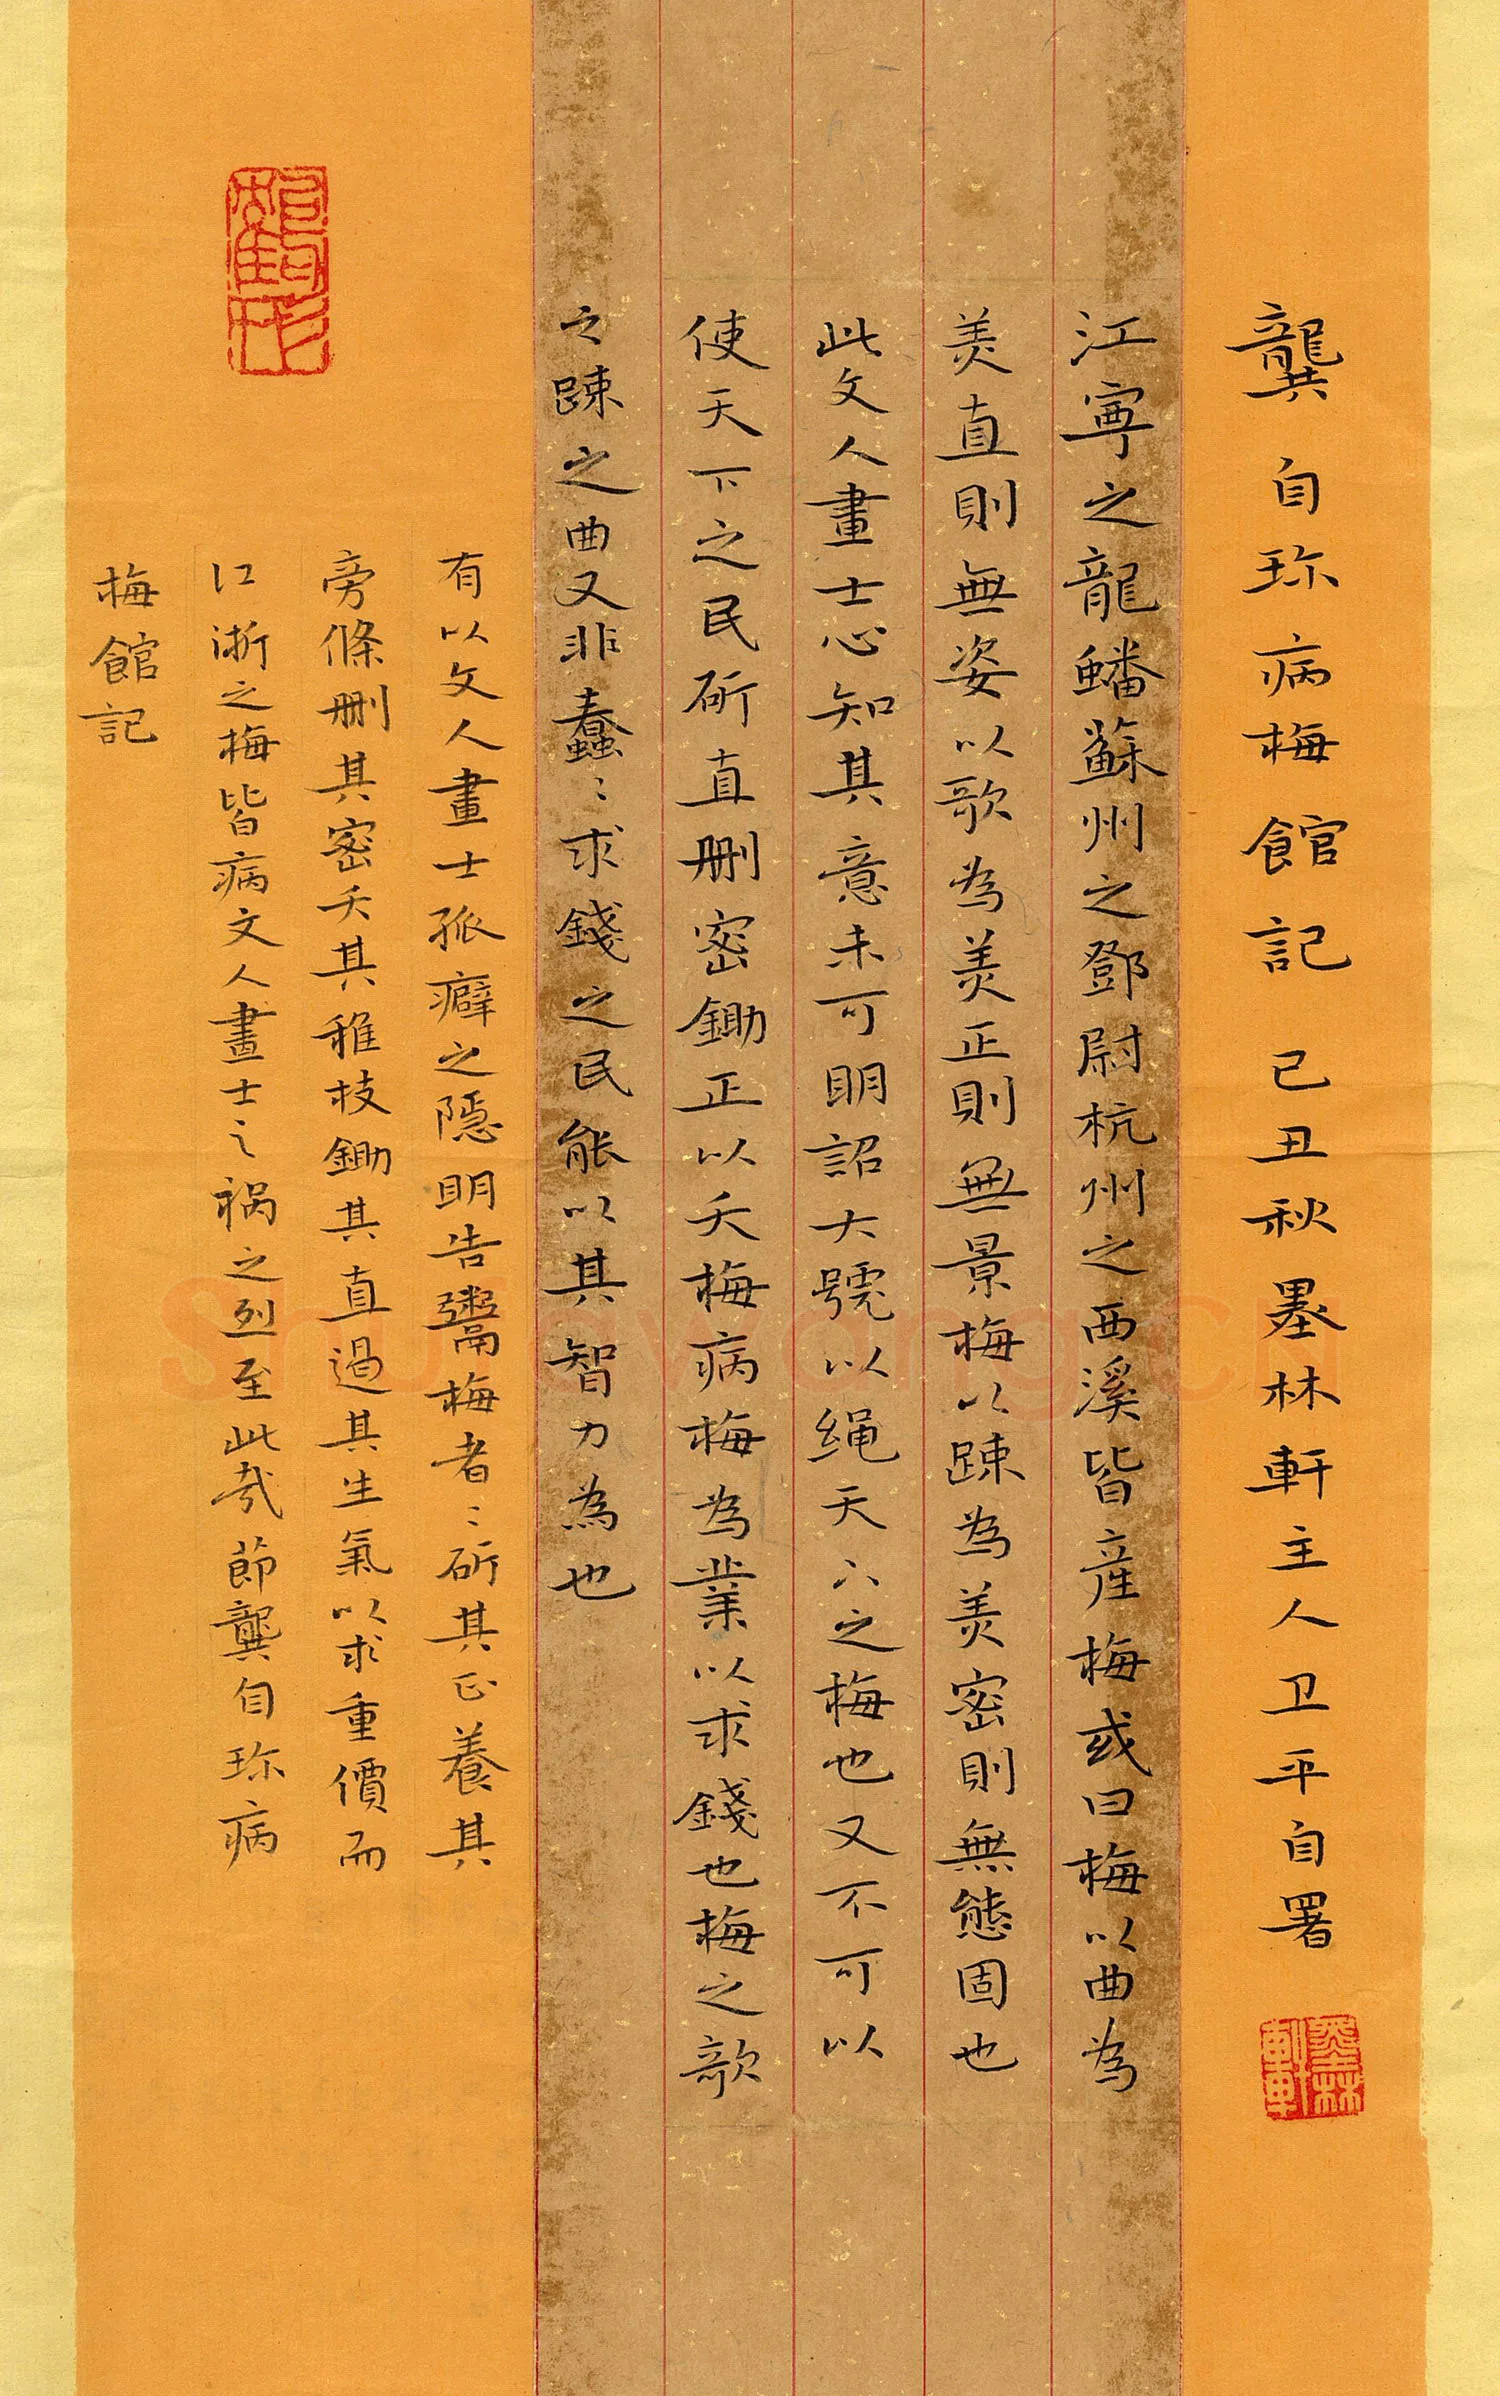 龔自珍病梅館記 己丑秋墨林軒主人卫平自署
墨林軒
江寧之龍蟠蘇州之鄧尉杭州之西溪皆産梅或曰梅以曲為
美直則無姿以欹為美正則無景梅以踈為美密則無態固也
此文人畫士心知其意未可明詔大號以绳天下之梅也又不可以
使天下之民斫直删密鋤正以夭梅病梅為業以求錢也梅之欹
之踈之曲又非蠢〻求錢之民能以其智力為也
有以文人畫士孤癖之隱明告鬻梅者〻斫其正養其
旁條删其密夭其稚枝鋤其直遏其生氣以求重價而
江浙之梅皆病文人畫士之祸之烈至此哉節龔自珍病
梅館記